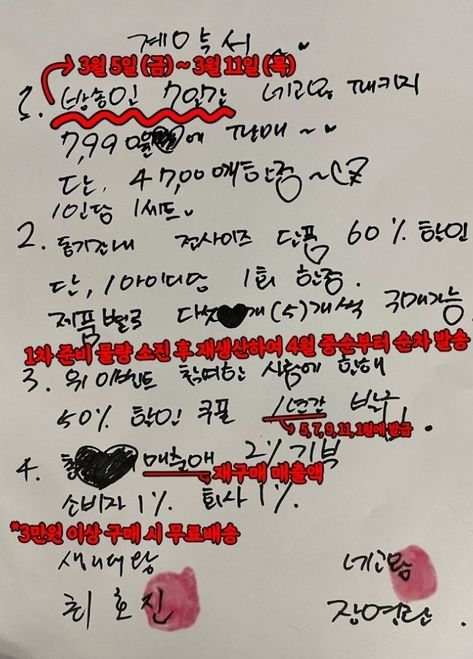 계약서
3월 5일 (금) ~ 3월 11일 (목)
1. 방송인 7일간 네고왕 패키지
7,990원에 판매 ~
단, 47,00개 한정 ~
1인당 1세트.
2. 동기간내 전사이즈 단품 60% 할인
단, 1아이디당 1회 한정.
제품별로 다섯개 (5)개씩 구매가능
1차 준비 물량 소진 후 재생산하여 4월 중순부터 순차 발송
3. 위 이벤트 참여한 사람에 한해
50% 할인 쿠폰 1년간 발급.
5, 7, 9, 11, 1월에 발급
4. 매출액 2% 기부
재구매 매출액
소비자 1% 회사 1%.
*3만원 이상 구매 시 무료배송
네고왕
최호진 장영란.